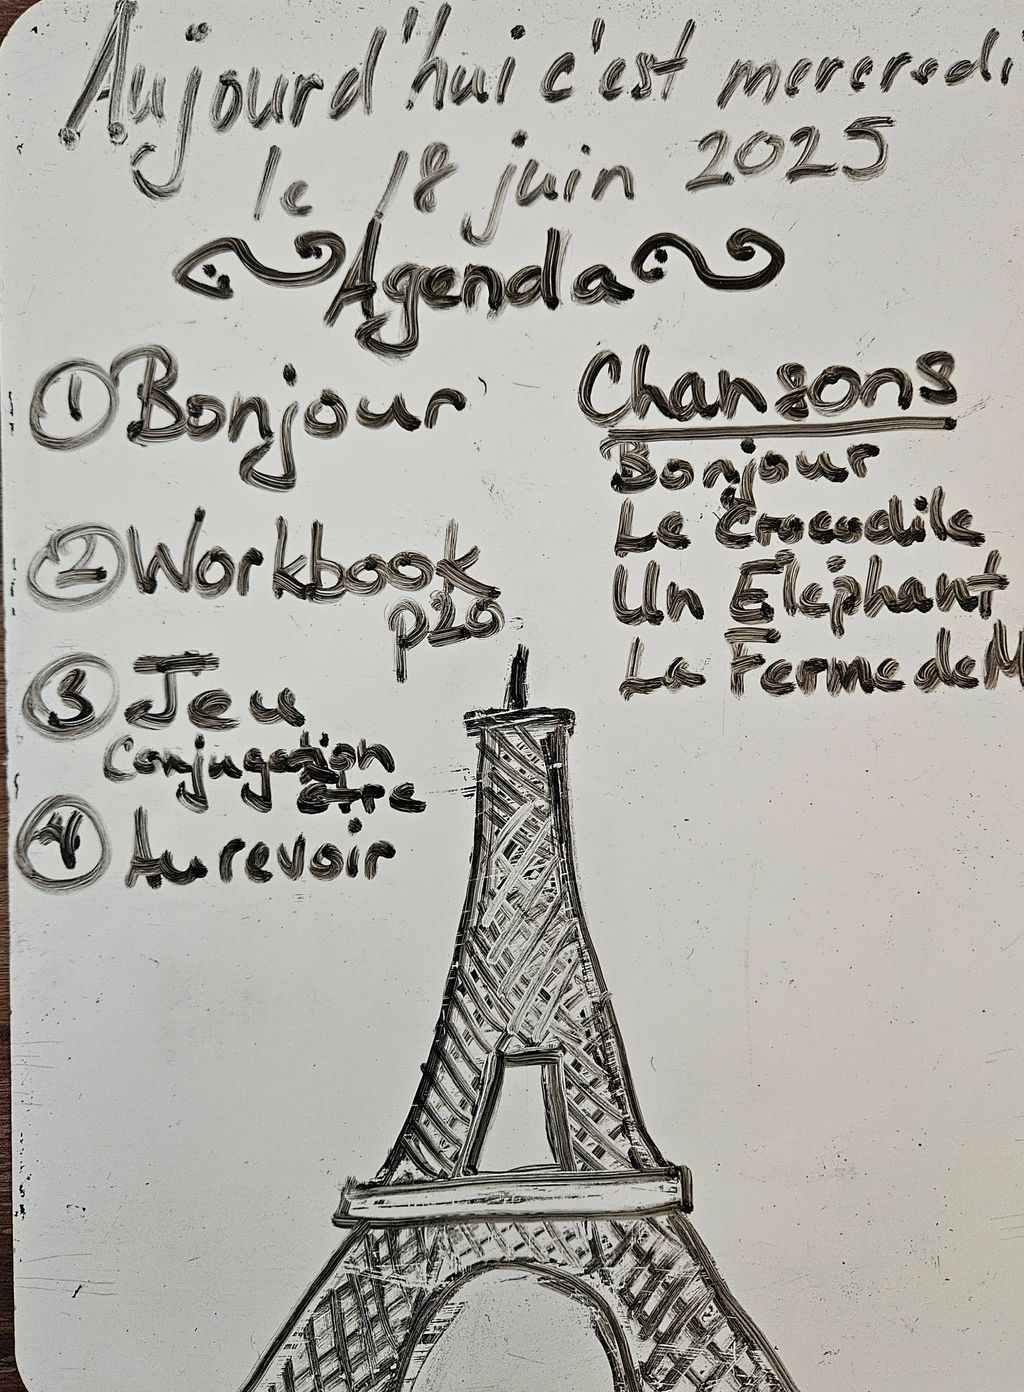 Aujourd'hui c'est mercredi
le 18 juin 2025
Agenda
① Bonjour
② Workbook
p20
③ Jeu
Conjugation
être
④ Au revoir
Chansons
Bonjour
Le Crocodile
Un Éléphant
La Ferme de M